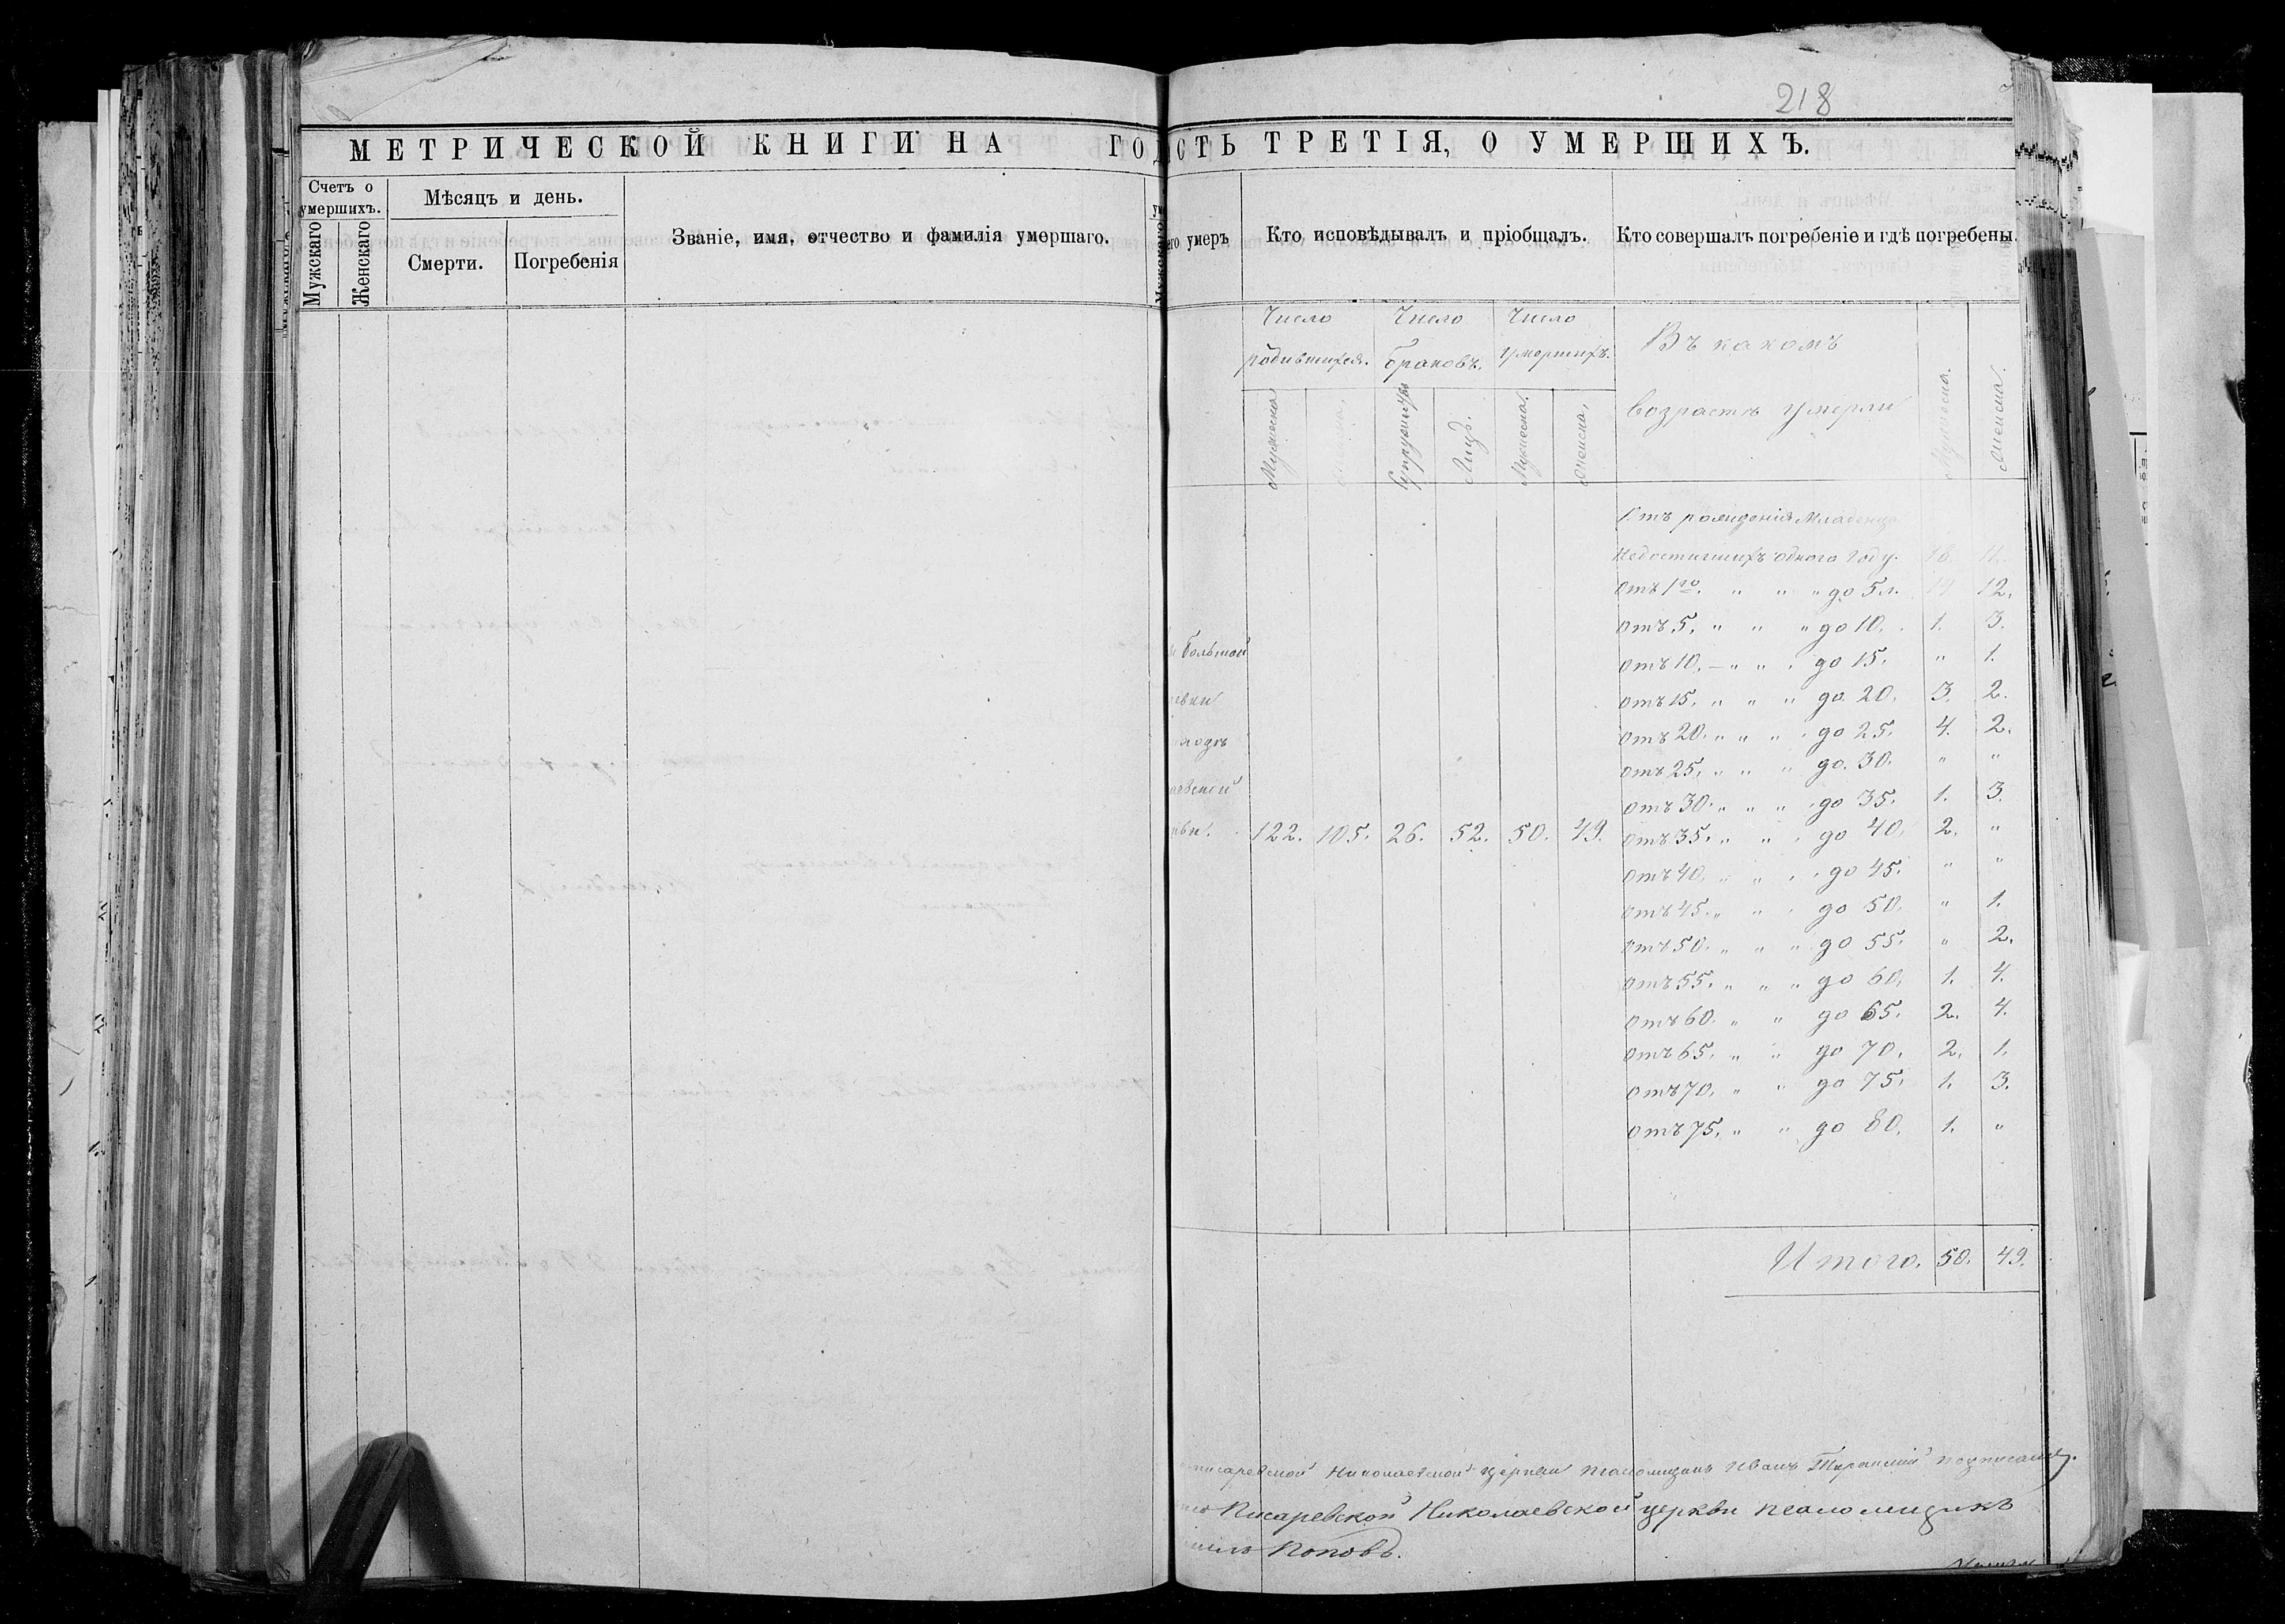 218
МЕТРИЧЕСКОЙ КНИГИ НА ГОД
СТЬ ТРЕТІЯ, О УМЕРШИХЪ.
Счетъ о умершихъ.
Мужскаго
Женскаго
Мѣсяцъ и день.
Смерти.
Погребенія
Званіе, имя, отчество и фамилія умершаго.
его умеръ
Кто исповѣдывалъ и пріобщалъ.
Кто совершалъ погребеніе и гдѣ погребены.
Число родившихся.
Число браковъ.
Число умершихъ.
Въ какомъ
возрастѣ умерли
Мужеска
Супружествъ
Лицъ.
Мужеска.
Женска,
Мужеска.
Женска.
Отъ рожденія Младенца
недостигшихъ одного году. 18. 11.
отъ 1го. " " " до 5 л. 14 12.
отъ 5. " " " до 10. 1. 3.
отъ 10. " " " до 15. " 1.
отъ 15. " " " до 20. 3. 2.
отъ 20. " " " до 25. 4. 2.
отъ 25. " " " до 30. " "
отъ 30. " " " до 35. 1. 3.
отъ 35. " " " до 40. 2. "
отъ 40. " " " до 45. " "
отъ 45. " " " до 50. " 1.
отъ 50. " " " до 55. " 2.
отъ 55. " " " до 60. 1. 4.
отъ 60. " " до 65. 2. 4.
отъ 65. " " до 70. 2. 1.
отъ 70. " " до 75. 1. 3.
отъ 75. " " до 80. 1. "
Большой
евки
аевской
кви. 122. 105. 26. 52. 50. 49.
Итого. 50. 49.
писаревской Николаевской церкви псаломщикъ Иванъ
Писаревской Николаевской церкви псаломщикъ
Поповъ.